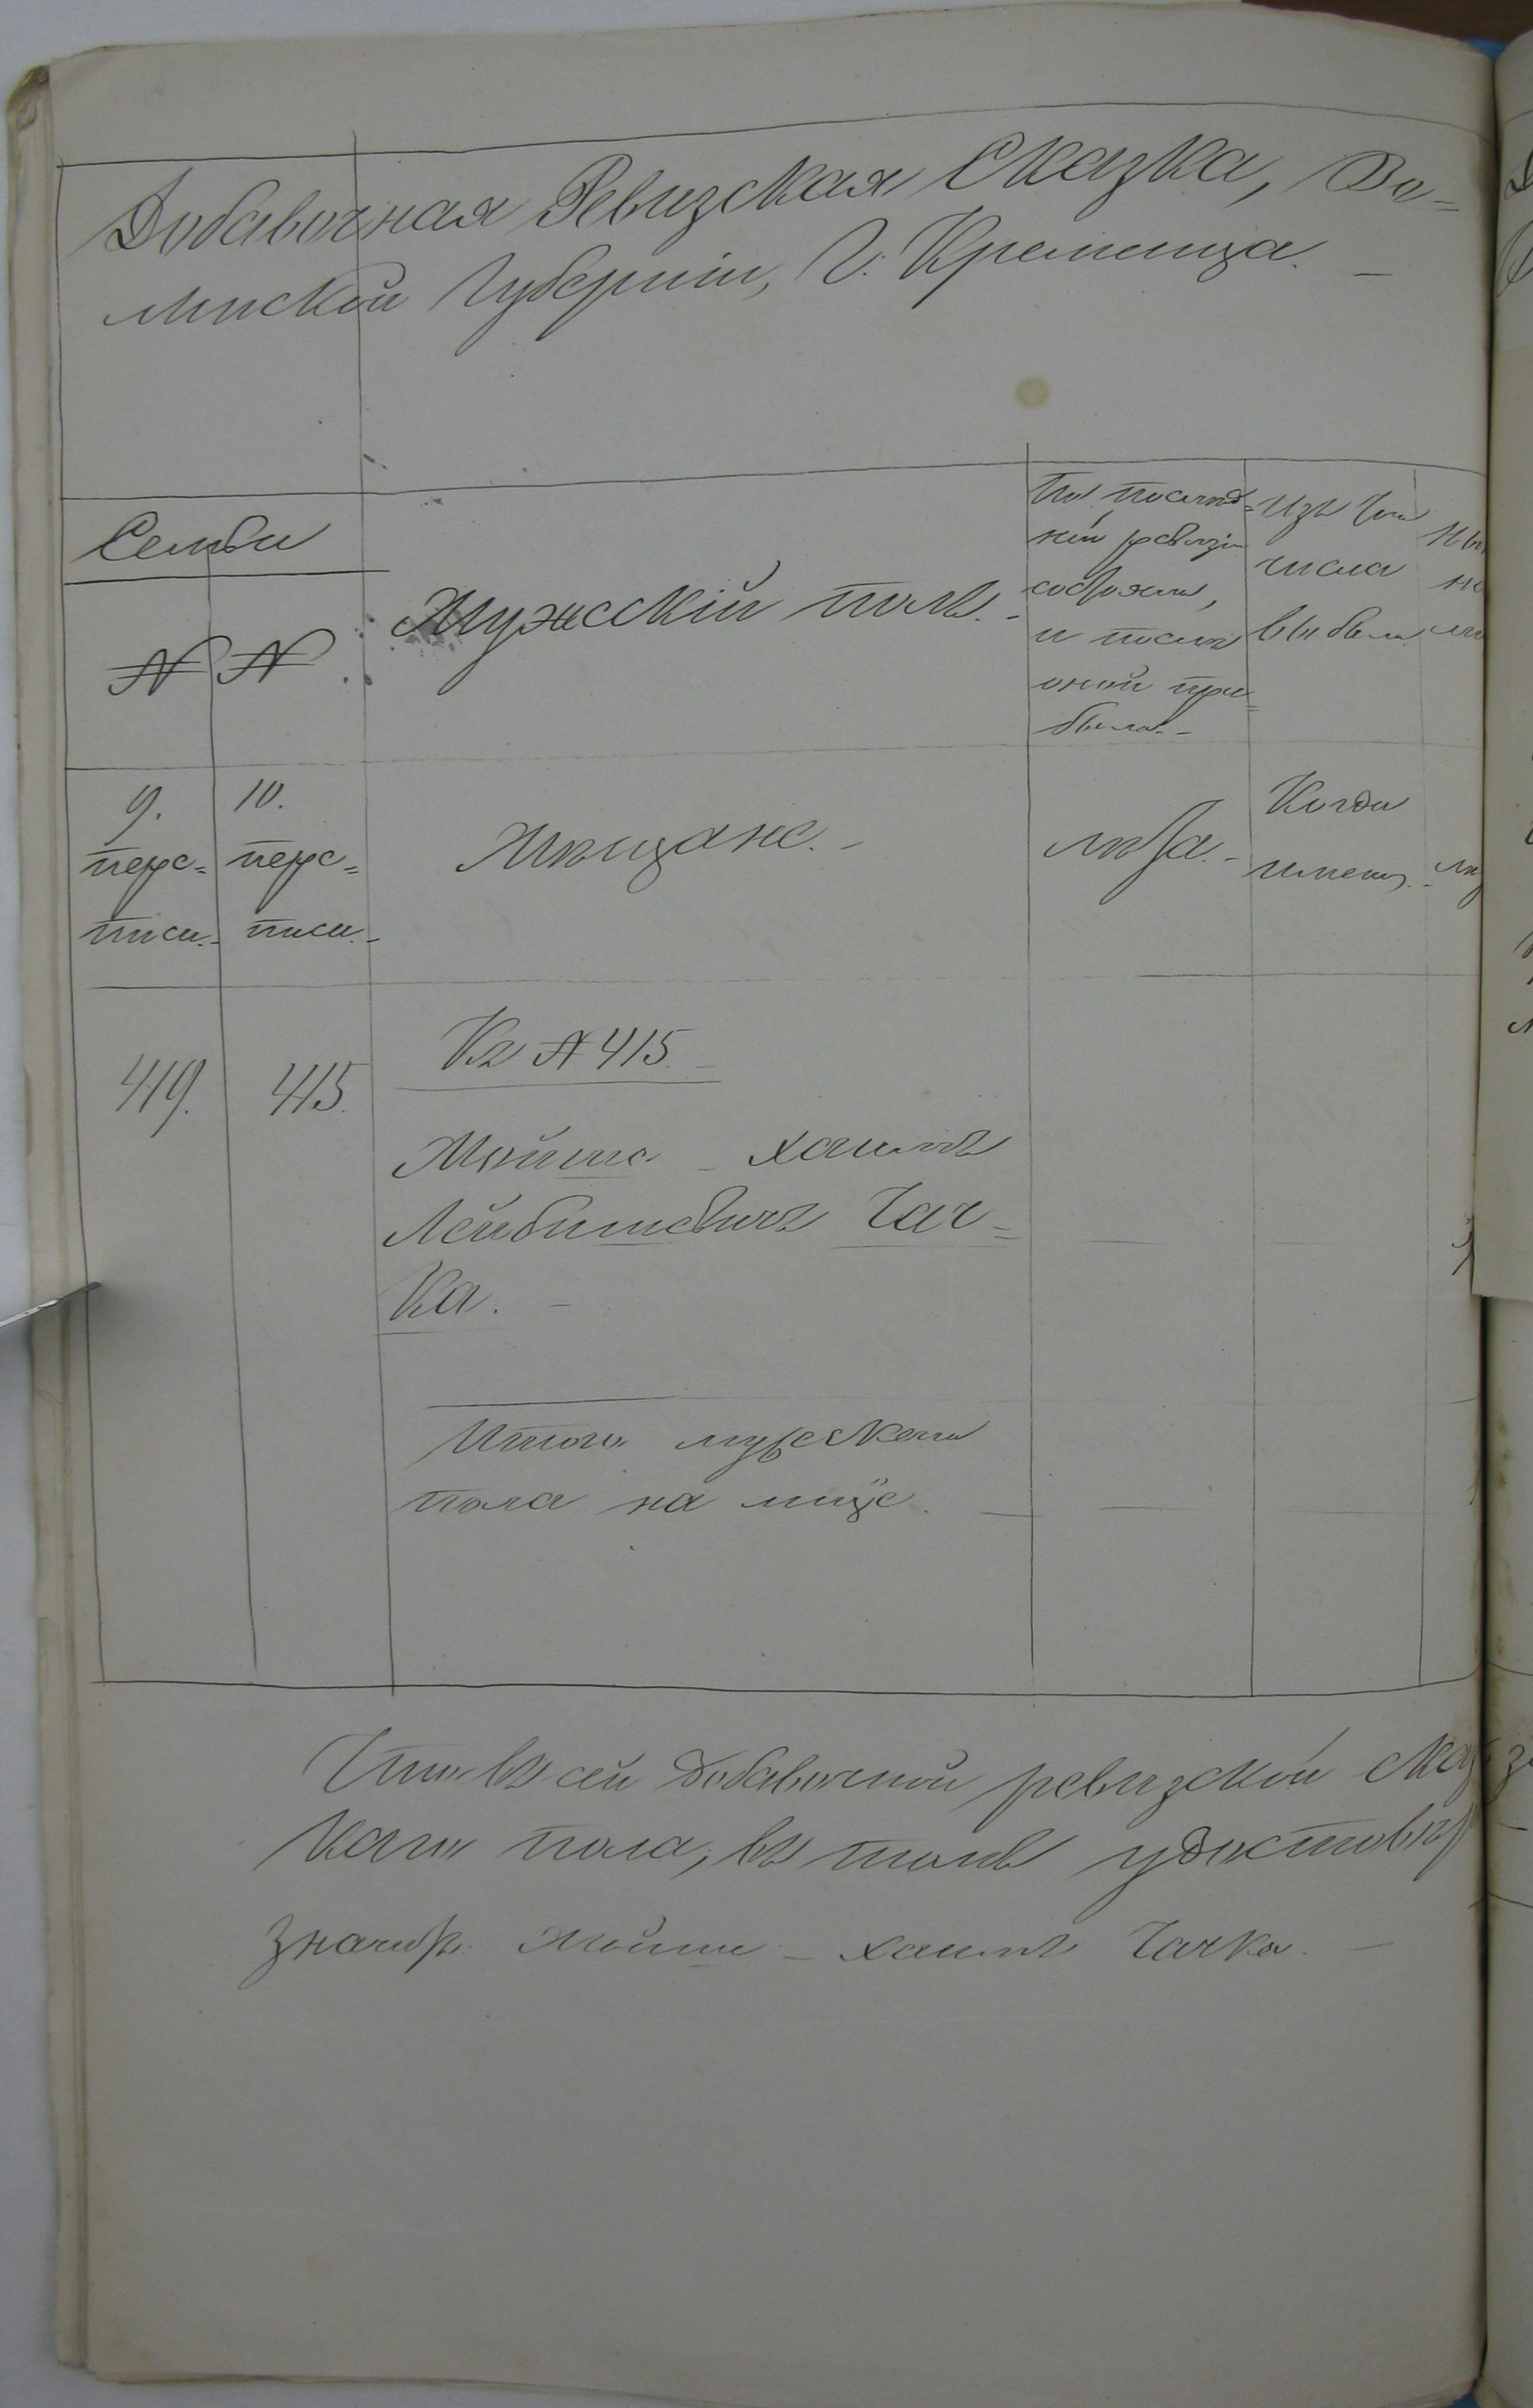 Добавочная Ревизская Сказка, Во=
лынской Губерніи, Г. Кременца. —
Семьи
№ №
Мужескій полъ. -
По послѣд=
ней ревизіи
состояло,
и послѣ
оной при=
было. -
Изъ того
числа
выбыло.
9.
пере=
писи. -
10.
пере=
писи. -
Мѣщане. -
Лѣта. -
Когда
имено. -
419.
415.
Къ № 415. -
Мойше - Хаимъ
Лейбишевичъ Чач=
ка. -
Итого мужескаго
пола на лице. —
Что въ сей добавочной ревизской сказ
каго пола, въ томъ удостовѣр
Значитъ: Мойше - Хаимъ Чачка. —